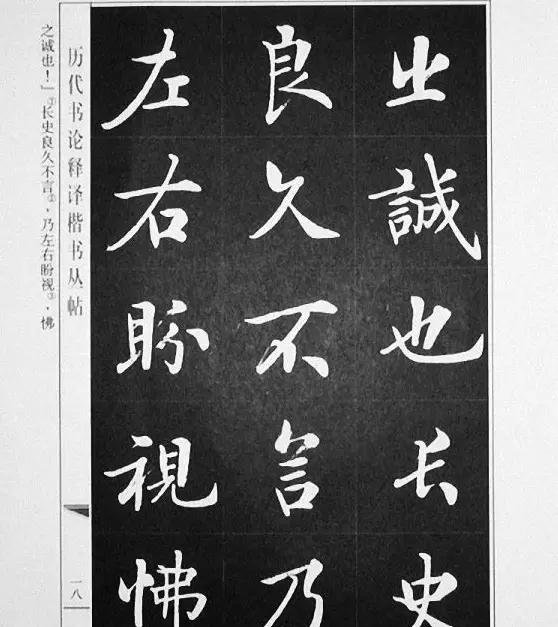 之誠也长史
良久不言乃
左右盼視怫
历代书论释译楷书丛帖
一八
之诚也！」①长史良久不言②，乃左右盼视③，怫